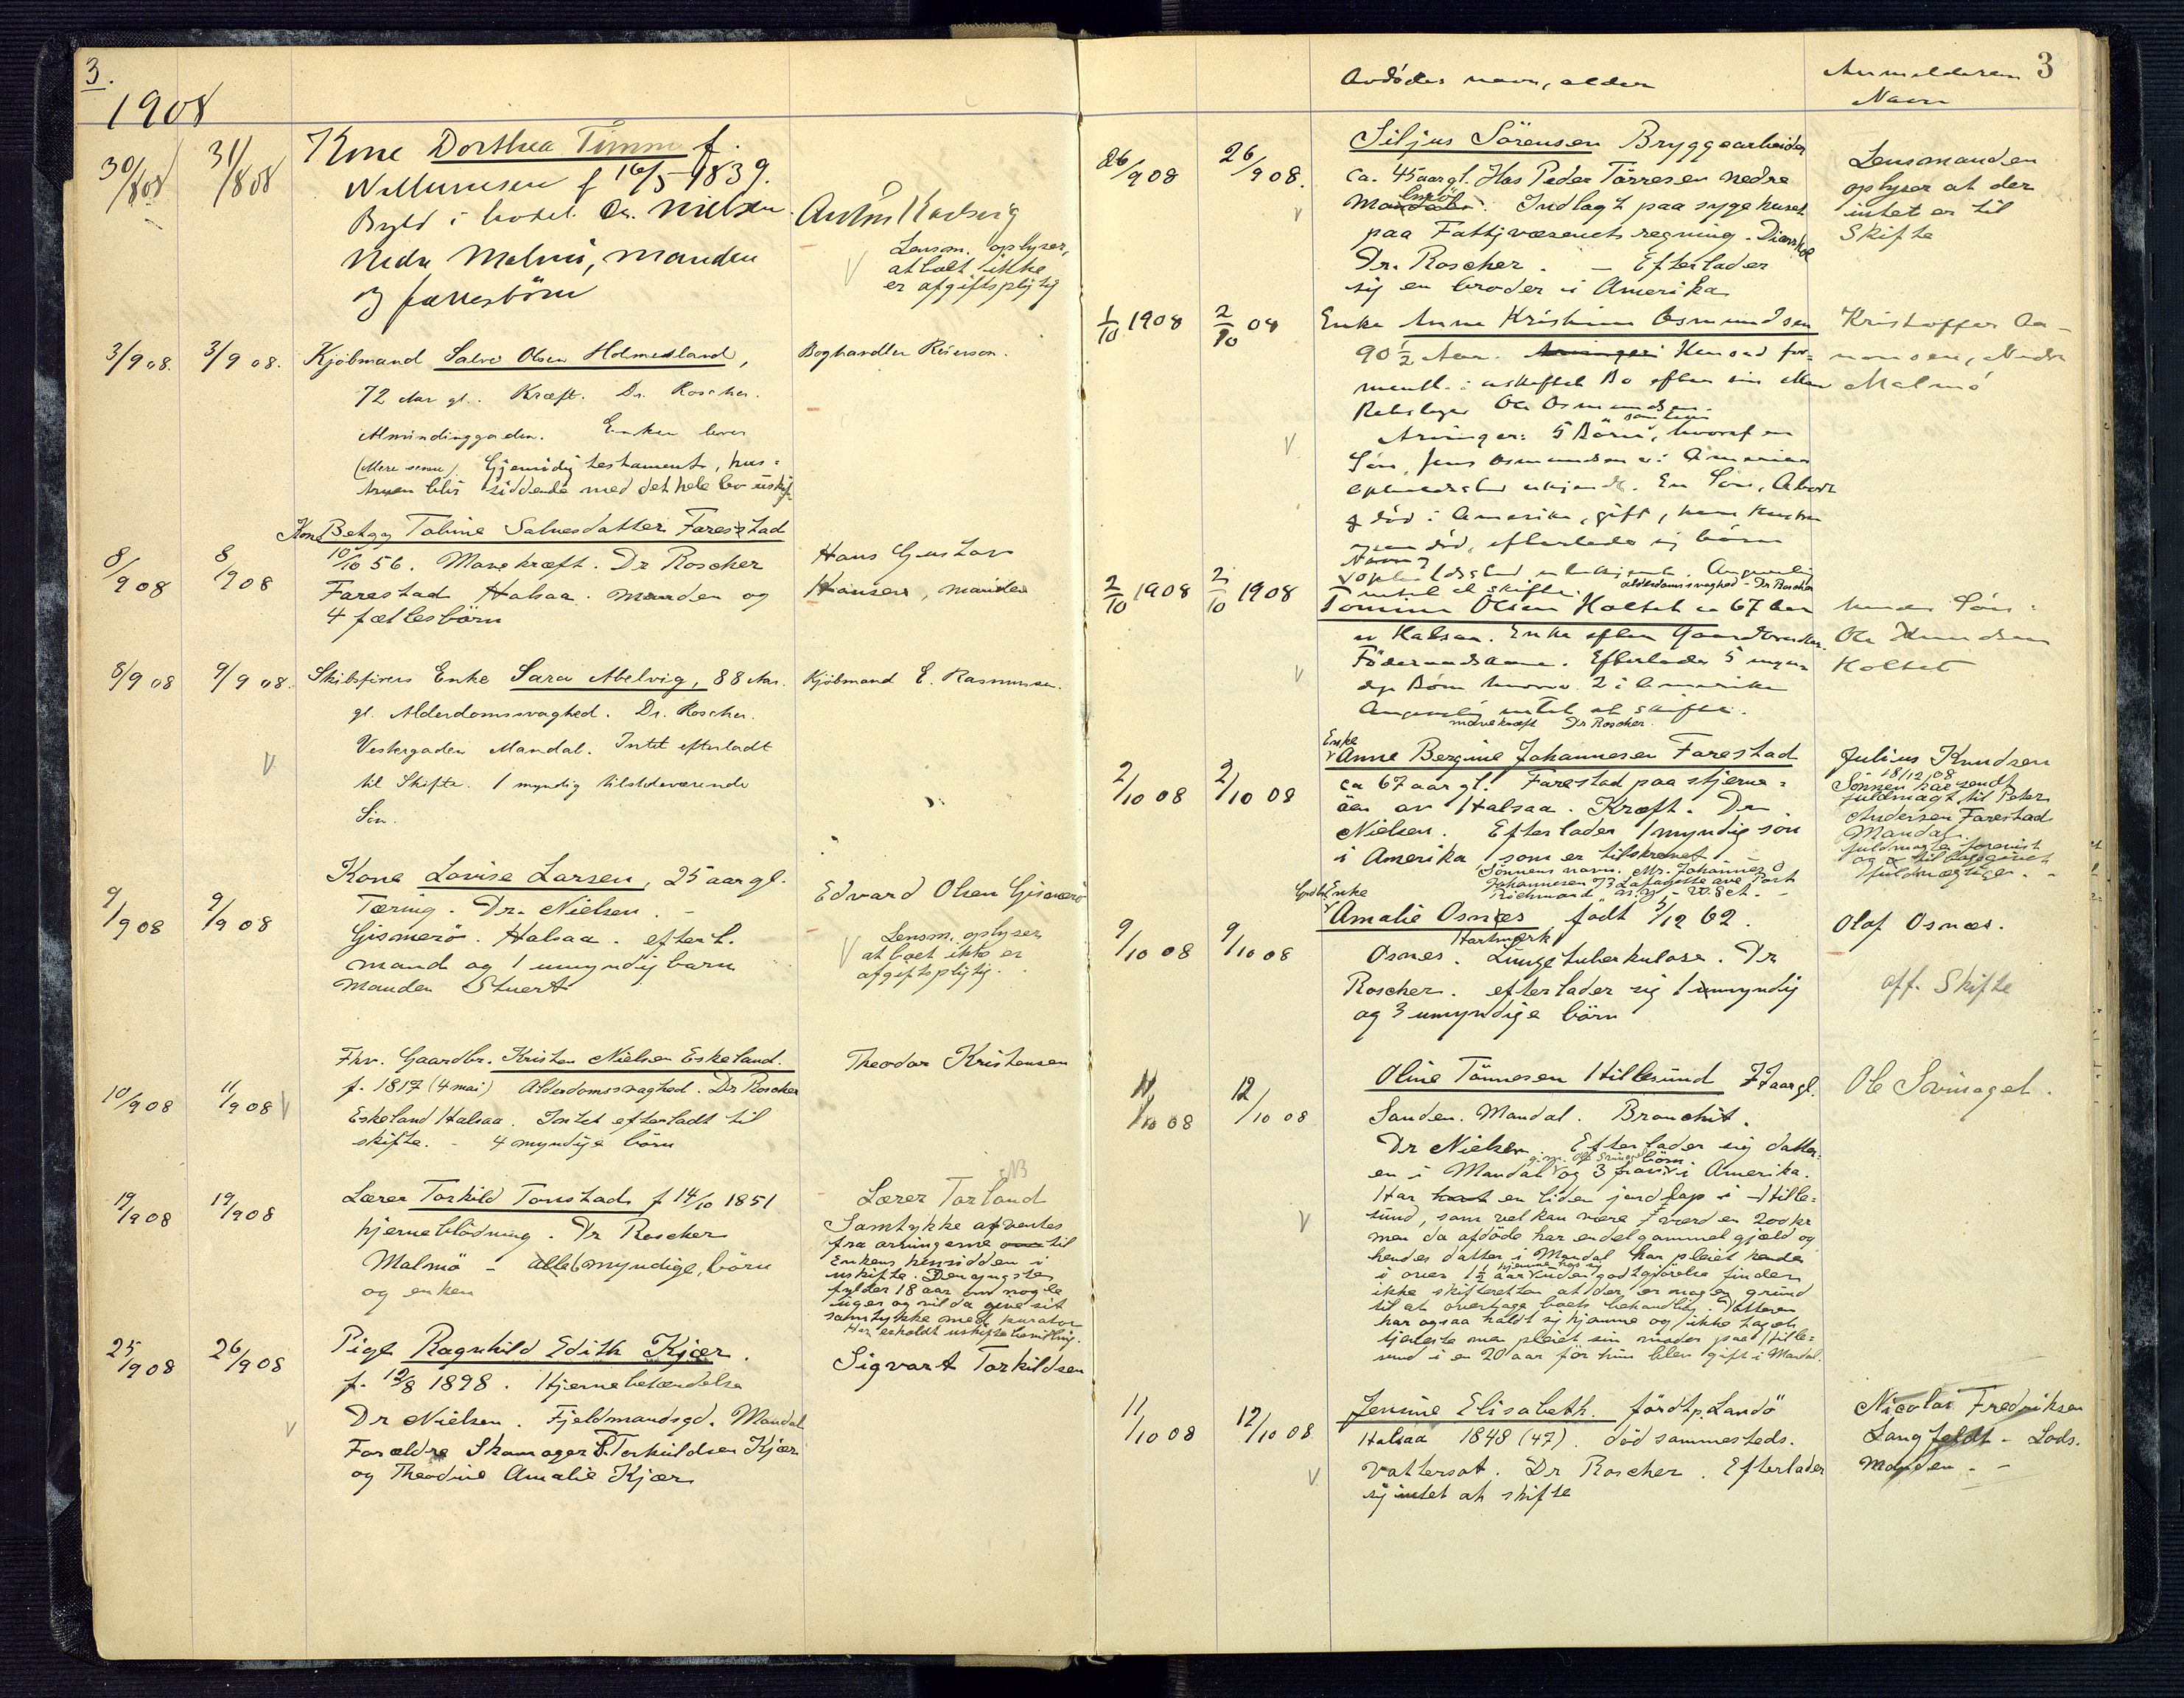 3.
1908
30/8 08
31/8 08
Kone Dorthea Timm f.
f 16/5 1839.
Byld i hodet. Dr. Nielsen.
Nedre Malmö, manden
og fællesbörn
Lensm. oplyser,
at boet ikke
er afgiftspligtig
3/9 08.
3/9 08.
Kjöbmand Salve Olsen Holmesland,
72 Aar gl. Kræft. Dr. Roscher.
Almindinggaden. Enken lever
(Mere senere). Gjensidig testamente, hus-
siddende med det hele bo uskift
Boghandler
8/9 08
8/9 08
Kone Betzy Tobine Salvesdatter Farestad
10/10 56. Mavekræft. Dr Roscher
Farestad Halsaa. Manden og
4 fællesbörn
Hans Gustav
Hansen, manden
8/9 08
9/9 08.
Skibsförers Enke Sara Abelvig, 88 Aar.
gl. Alderdomssvaghed. Dr. Roscher.
Vestergaden Mandal. Intet efterladt
til Skifte. 1 myndig tilstedeværende
Sön.
Kjöbmand E. Rasmussen.
9/9 08
9/9 08
Kone Lovise Larsen, 25 aar gl.
Tæring. Dr. Nielsen. -
Gismerö. Halsaa. efterl.
mand og 1 umyndig barn
Manden Stuert
Edvard Olsen Gismerö
Lensm. oplyser
at boet ikke er
afgiftspligtig.
10/9 08
11/9 08
Fhv. Gaardbr. Kristen Nielsen Eskeland.
f. 1817 (4 mai) Alderdomssvaghed. Dr Roscher
Eskeland Halsaa. Intet efterladt til
skifte. - 4 myndige börn
Theodor Kristensen
19/9 08
19/9 08
Lærer Torkild Tonstad f 14/10 1851
hjerneblödning. Dr Roscher
Malmö - myndige börn
og enken
NB
Lærer Torland
Samtykke afventes
fra arvingerne til
Enkens hensidden i
uskifte. Den yngste
fylder 18 aar om nogle
uger og vil da give sit
samtykke med kurator
Har erholdt uskiftebevilling.
25/9 08
26/9 08
Pige Ragnhild Edith Kjær.
f. 12/8 1898. Hjernebetændelse
Dr Nielsen. Fjeldmandsgd. Mandal
Forældre Skomager S. Torkildsen Kjær
og Theodine Amalie Kjær
Sigvart Torkildsen
Avdödes navn, alder
Anmelderens
Navn
3
26/9 08
26/9 08.
Siljus Sörensen Bryggearbeider
ca. 45 aar gl. Hos Peder Törresen nedre
Malmö. Indlagt paa sygehuset
paa Fattigvæsenets regning.
Dr. Roscher. - Efterlader
sig en broder i Amerika
Lensmanden
oplyser at der
intet er til
Skifte
1/10 1908
2/10 08
Enke Anne Kristine Osmundsen
90 1/2 Aar. Hensad for-
mentl. i uskiftet Bo efter sin Mand
Rebslager Ole Osmundsen.
Arvinger: 5 Börn, hvoraf en
Sön, Jens Osmundsen er i Amerika
opholdssted ukjendt. En Sön,
död i Amerika, gift,
död, efterlade sig börn
intet at skifte. alderdomssvaghed - Dr Roscher
Kristoffer Aa-
nonsen, Nedre
Malmö
2/10 1908
2/10 1908
Tomine Olsen Holtet ca 67 Aar
av Halsaa. Enke efter Gaardbruker
Efterlader 5 myn-
dige Börn hvorav 2 i Amerika
Angivelig intet at skifte.
mavekræft Dr Roscher.
hendes Sön:
Ole Knudsen
Holtet
2/10 08
2/10 08
Enke
Anne Bergine Johannesen Farestad
ca 67 aar gl. Farestad paa stjerne-
öen av Halsaa. Kræft. Dr
Nielsen. Efterlader 1 myndig sön
i Amerika som er tilskrevet
Sönnens navn. Mr. Johannes
Johannesen 73 Lafayette ave Port
Richmond N.Y.
Julius Knudsen
18/12 08
Sönnen har sendt
fuldmagt til Peter
Andersen Farestad
Mandal.
fuldmagten forevist
og tilbagegivet
fuldmægtigen. -
9/10 08
9/10 08
Enke
Amalie Osnes födt 5/12 62.
Hartmark
Osnes. Lungetuberkulose. Dr
Roscher. efterlader sig 1 myndig
og 3 umyndige börn
Olaf Osnæs.
off. Skifte
11/10 08
12/10 08
Oline Tönnesen Hillesund 77 aar gl.
Sanden. Mandal. Bronchit.
Dr Nielsen. Efterlader sig datter
en i Mandal og 3 börn i Amerika.
Har en liden jordlap i Hille-
sund, som vel kan være værd en 200 kr
men da afdöde har endel gammel gjæld og
hendes datter i Mandal har pleiet hende
i over 1 1/2 aar hjemme hos sig uden godtgjörelse finder
ikke skifteretten at der er nogen grund
til at overtage boets behandling. Datteren
har ogsaa holdt sig hjemme og ikke taget
tjeneste men pleiet sin moder paa Hille-
sund i en 20 aar för hun blev gift i Mandal.
Ole
11/10 08
12/10 08
Jensine Elisabeth. födt p. Landö
Halsaa 1848 (47). död sammesteds.
Vattersot. Dr Roscher. Efterlader
sig intet at skifte
Nicolai Fredriksen
Langfeldt - Lods.
Manden. -